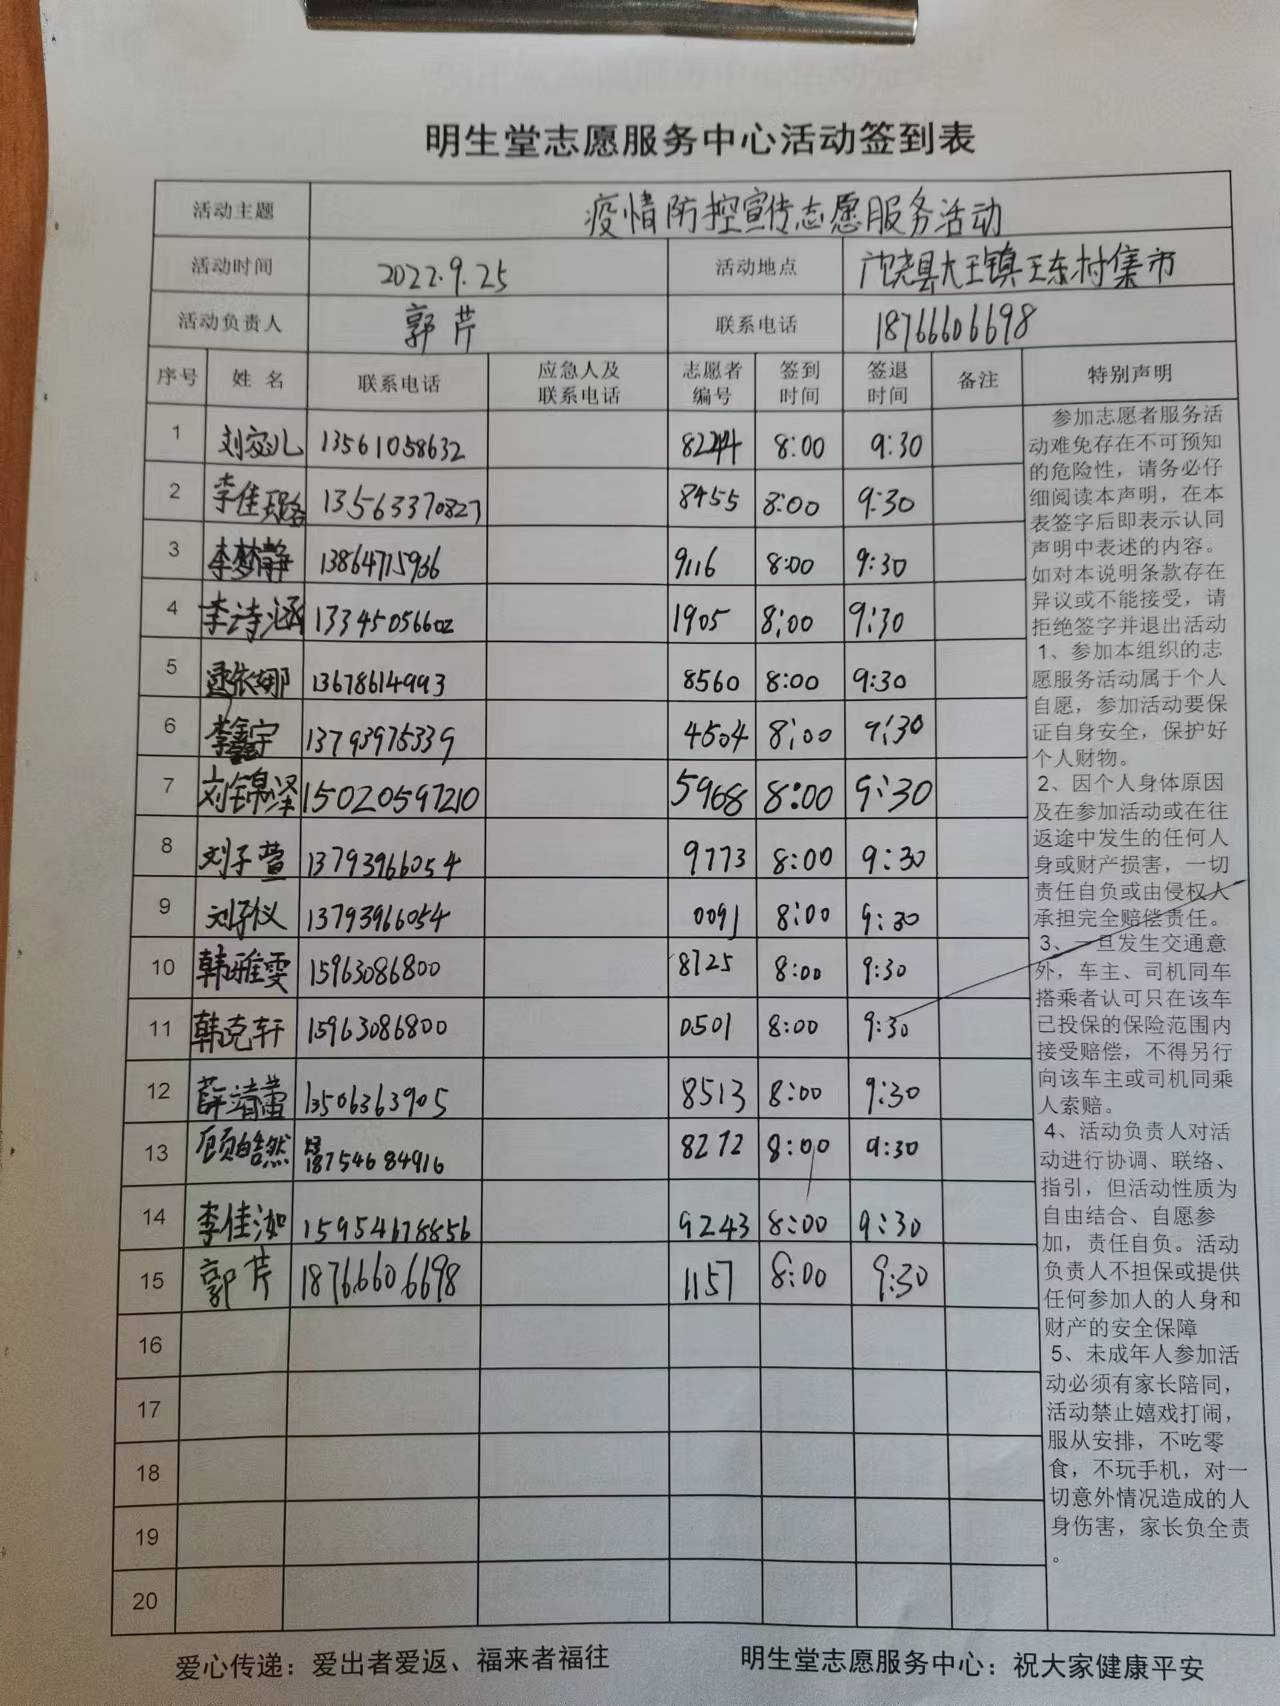 明生堂志愿服务中心活动签到表
活动主题 疫情防控宣传志愿服务活动
活动时间 2022.9.25 活动地点 广饶县大王镇王东村集市
活动负责人 郭芹 联系电话 18766606698
序号 姓名 联系电话 应急人及联系电话 志愿者编号 签到时间 签退时间 备注 特别声明
1 13561058632 8244 8:00 9:30
2 李佳璐 13563370827 8455 8:00 9:30
3 李梦静 13864715936 9116 8:00 9:30
4 李诗涵 13345056602 1905 8:00 9:30
5 13678614993 8560 8:00 9:30
6 李鑫宇 13793975339 4504 8:00 9:30
7 刘锦泽 15020597210 5968 8:00 9:30
8 刘子萱 13793966054 9773 8:00 9:30
9 刘子仪 13793966054 0091 8:00 9:30
10 韩雅雯 15963086800 8725 8:00 9:30
11 韩克轩 15963086800 0501 8:00 9:30
12 薛靖蕾 13506363905 8513 8:00 9:30
13 顾皓然 18754684916 8272 8:00 9:30
14 李佳洳 15954678856 9243 8:00 9:30
15 郭芹 18766606698 1157 8:00 9:30
16
17
18
19
20
参加志愿者服务活
动难免存在不可预知
的危险性，请务必仔
细阅读本声明，在本
表签字后即表示认同
声明中表述的内容。
如对本说明条款存在
异议或不能接受，请
拒绝签字并退出活动
1、参加本组织的志
愿服务活动属于个人
自愿，参加活动要保
证自身安全，保护好
个人财物。
2、因个人身体原因
及在参加活动或在往
返途中发生的任何人
身或财产损害，一切
责任自负或由侵权人
承担完全赔偿责任。
3、一旦发生交通意
外，车主、司机同车
搭乘者认可只在该车
已投保的保险范围内
接受赔偿，不得另行
向该车主或司机同乘
人索赔。
4、活动负责人对活
动进行协调、联络、
指引，但活动性质为
自由结合、自愿参
加，责任自负。活动
负责人不担保或提供
任何参加人的人身和
财产的安全保障
5、未成年人参加活
动必须有家长陪同，
活动禁止嬉戏打闹，
服从安排，不吃零
食，不玩手机，对一
切意外情况造成的人
身伤害，家长负全责
。
爱心传递：爱出者爱返、福来者福往 明生堂志愿服务中心：祝大家健康平安